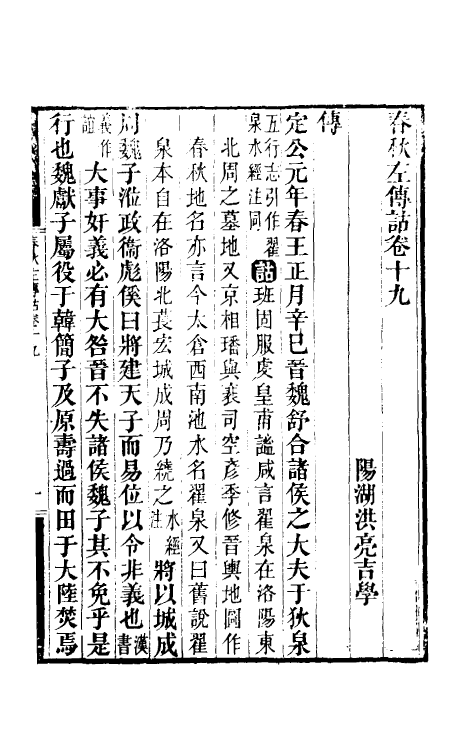 春秋左傳詁卷十九
陽湖洪亮吉學
傳
定公元年春王正月辛巳晉魏舒合諸侯之大夫于狄泉
五行志引作翟
泉水經注同
詁班固服虔皇甫謐咸言翟泉在洛陽東
北周之墓地又京相璠與裴司空彥季修晉輿地圖作
春秋地名亦言今太倉西南池水名翟泉又曰舊說翟
泉本自在洛陽北萇宏城成周乃繞之
水經
注
將以城成
周魏子涖政衞彪傒曰將建天子而易位以令非義也
漢書
義作
誼
大事奸義必有大咎晉不失諸侯魏子其不免乎是
行也魏獻子屬役于韓簡子及原壽過而田于大陸焚焉
春秋左傳詁卷十九
一